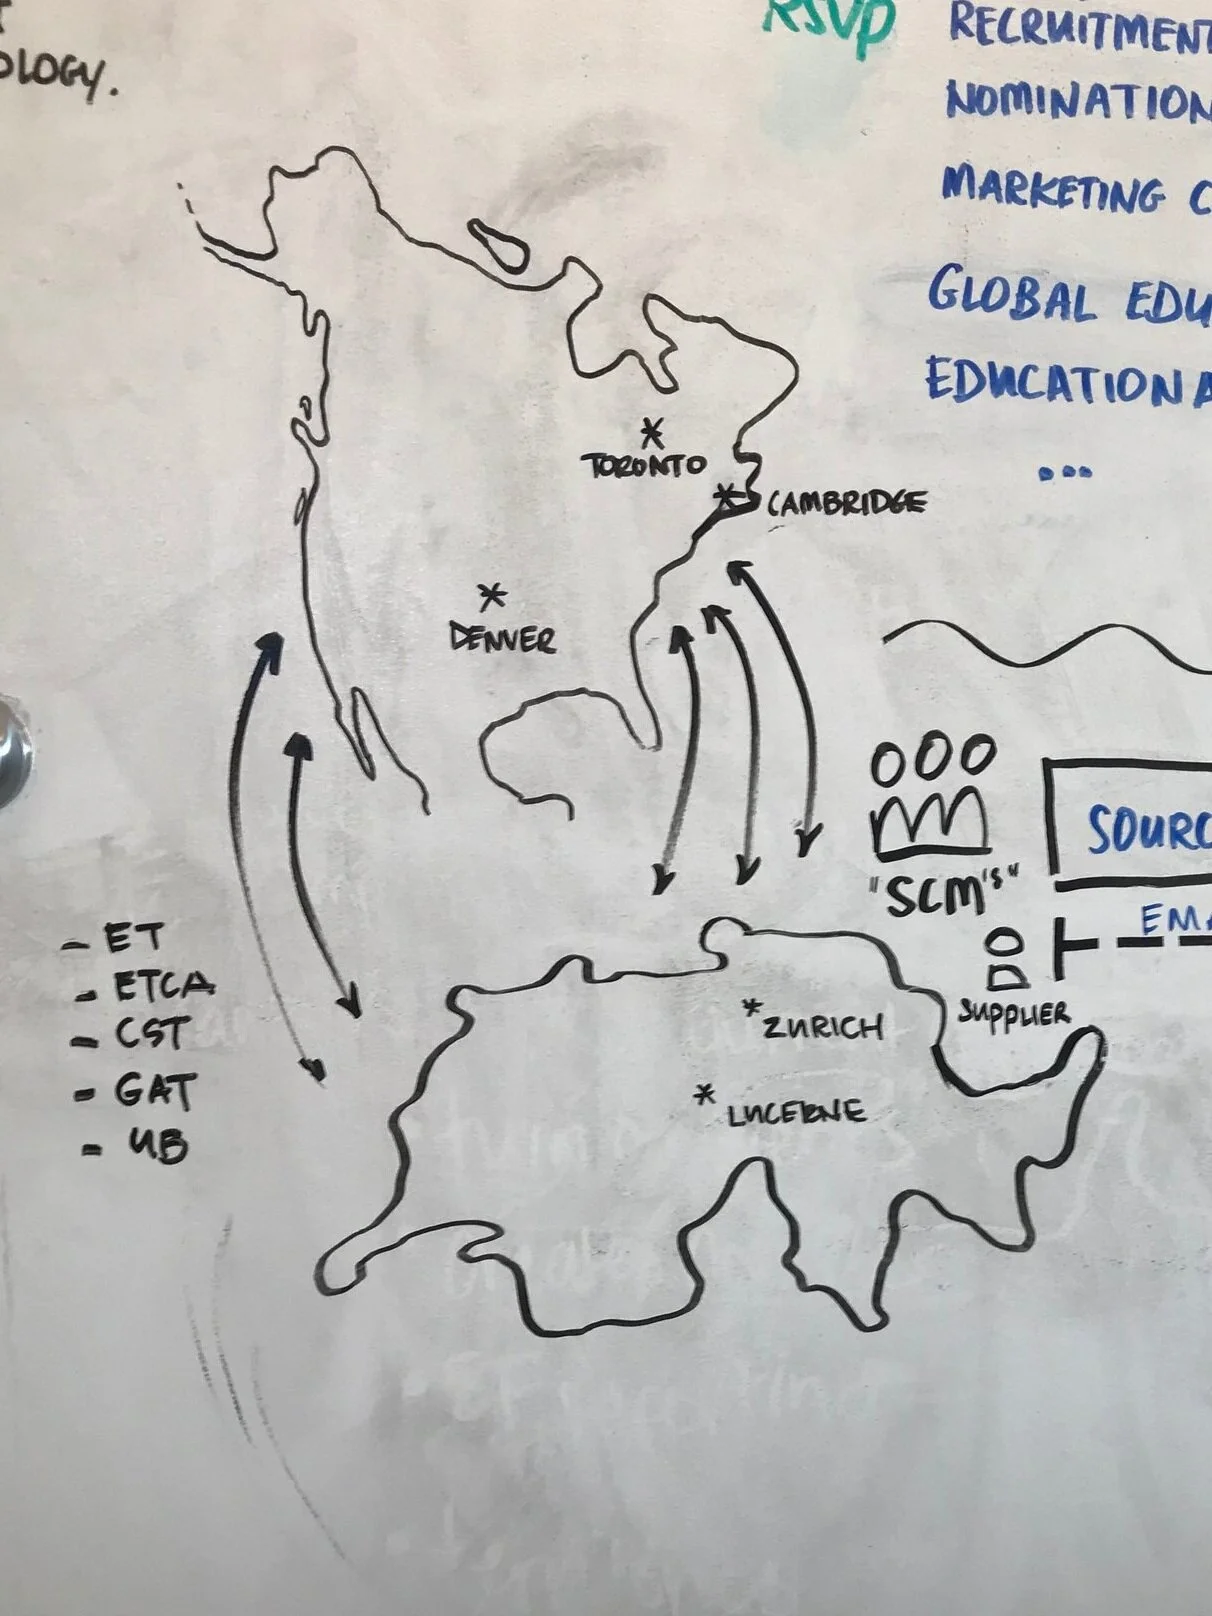 OLOGY.
RSVP
RECRUITMENT
NOMINATION
MARKETING C
GLOBAL EDU
EDUCATIONA
...
* TORONTO
* CAMBRIDGE
* DENVER
"SCM's"
SOURC
EMA
SUPPLIER
- ET
- ETCA
- CST
- GAT
- UB
* ZURICH
* LUCERNE